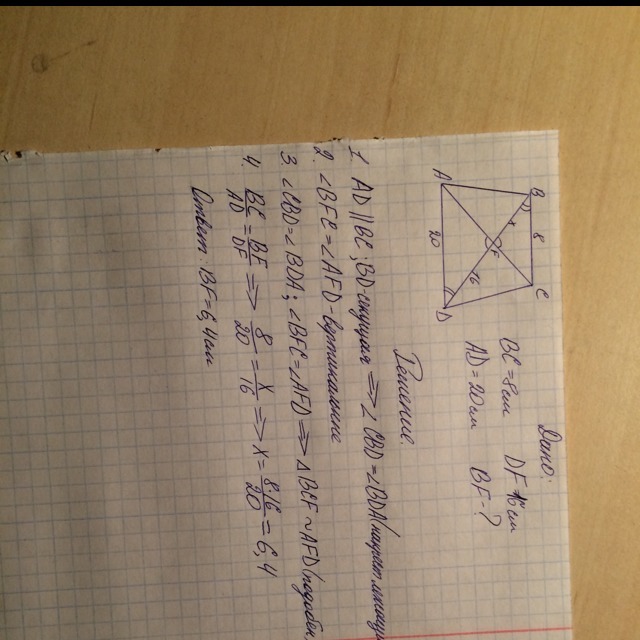 Дано:
BC=8см DF=16см
AD=20см BF-?
B 8 C
x F
16
A 20 D
Решение.
1. AD||BC; BD-секущая ⟹ ∠CBD=∠BDA(накрест
2. ∠BFC=∠AFD-вертикальные
3. ∠CBD=∠BDA; ∠BFC=∠AFD ⟹ △BCF~AFD(подобен
4. BC/AD=BF/DF ⟹ 8/20=x/16 ⟹ x=8·16/20=6,4
Ответ: BF=6,4см